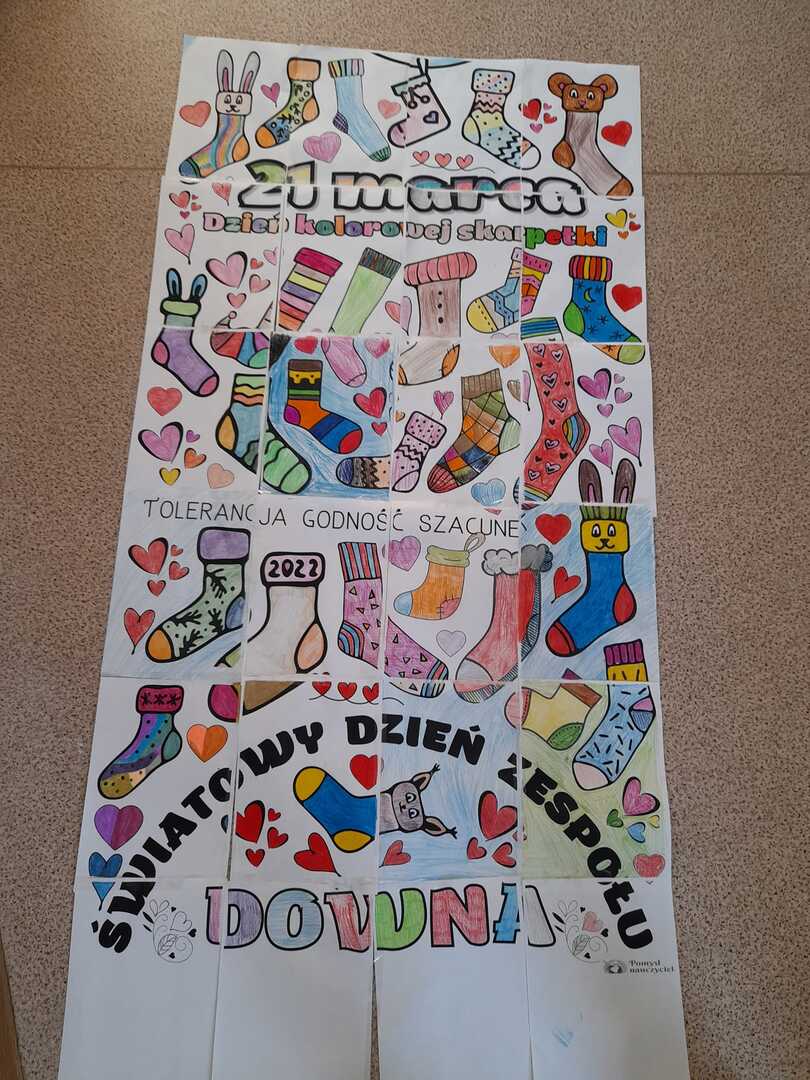 21 marca
Dzień kolorowej skarpetki
TOLERANCJA GODNOŚĆ SZACUNE
2022
ŚWIATOWY DZIEŃ ZESPOŁU
DOWNA
Pomysł
nauczyciel